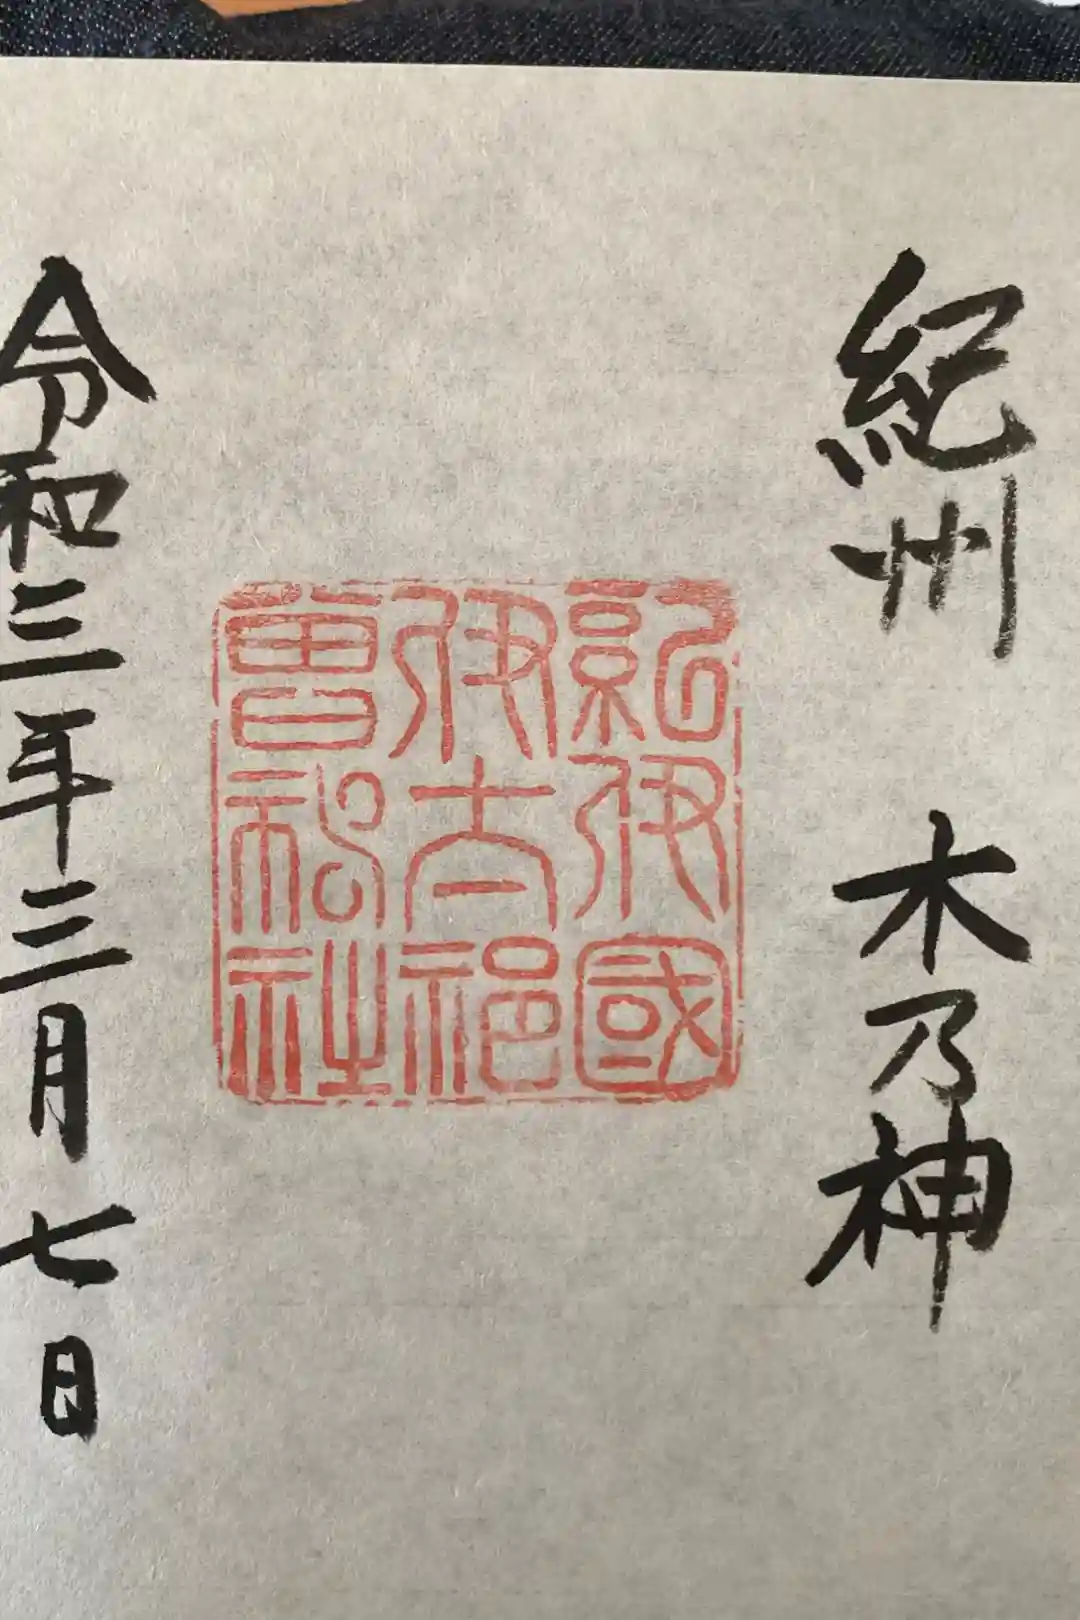 紀州 木乃神
紀伊國
伊太祁
曾神社
令和三年三月七日